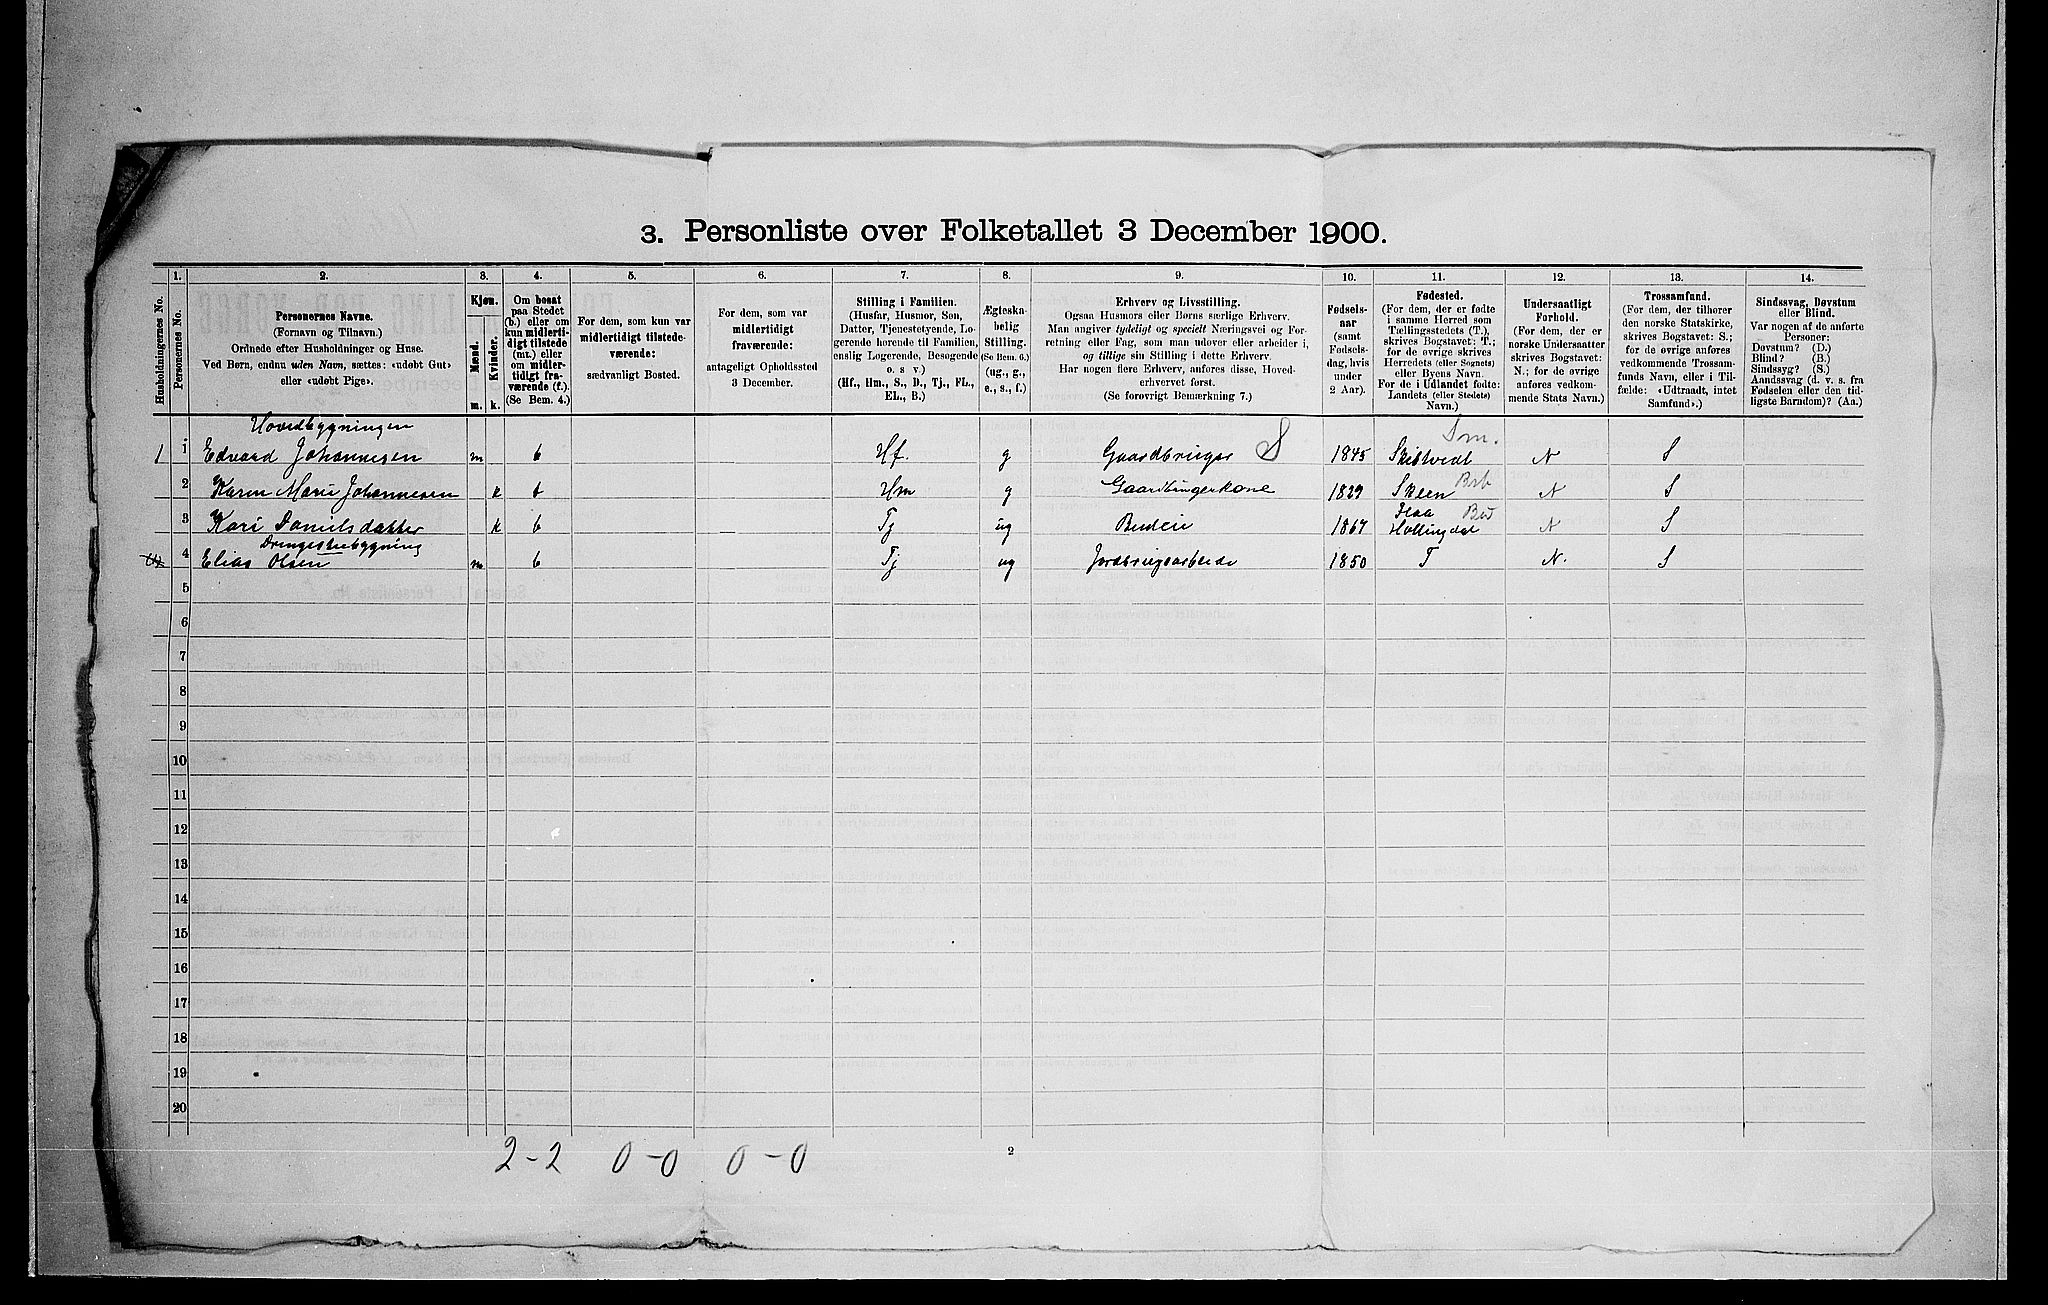 3. Personliste over Folketallet 3 December 1900.
1. 2. 3. 4. 5. 6. 7. 8. 9. 10. 11. 12. 13. 14.
Husholdningernes No.
Personernes No.
Personernes Navne.
(Fornavn og Tilnavn.)
Ordnede efter Husholdninger og Huse.
Ved Børn, endnu uden Navn, sættes: «udøbt Gut»
eller «udøbt Pige».
Kjøn.
Mænd.
Kvinder.
m. k.
Om bosat
paa Stedet
(b.) eller om
kun midlerti-
digt tilstede
(mt.) eller
om midler-
tidigt fra-
værende (f.).
(Se Bem. 4.)
For dem, som kun var
midlertidigt tilstede-
værende:
sædvanligt Bosted.
For dem, som var
midlertidigt
fraværende:
antageligt Opholdssted
3 December.
Stilling i Familien.
(Husfar, Husmor, Søn,
Datter, Tjenestetyende, Lo-
gerende hørende til Familien,
enslig Logerende, Besøgende
o. s. v.)
(Hf., Hm., S., D., Tj., FL.,
EL., B.)
Ægteska-
belig
Stilling.
(Se Bem. 6.)
(ug., g.,
e., s., f.)
Erhverv og Livsstilling.
Ogsaa Husmors eller Børns særlige Erhverv.
Man angiver tydeligt og specielt Næringsvei og For-
retning eller Fag, som man udøver eller arbeider i,
og tillige sin Stilling i dette Erhverv.
Har nogen flere Erhverv, anføres disse, Hoved-
erhvervet først.
(Se forøvrigt Bemærkning 7.)
Fødsels-
aar
(samt
Fødsels-
dag, hvis
under
2 Aar).
Fødested.
(For dem, der er fødte
i samme Herred som
Tællingsstedets (T.),
skrives Bogstavet: T.;
for de øvrige skrives
Herredets (eller Sognets)
eller Byens Navn.
For de i Udlandet fødte:
Landets (eller Stedets)
Navn.)
Undersaatligt
Forhold.
(For dem, der er
norske Undersaatter
skrives Bogstavet:
N.; for de øvrige
anføres vedkom-
mende Stats Navn.)
Trossamfund.
(For dem, der tilhører
den norske Statskirke,
skrives Bogstavet: S.;
for de øvrige anføres
vedkommende Trossam-
funds Navn, eller i Til-
fælde: «Udtraadt, intet
Samfund».)
Sindssvag, Døvstum
eller Blind.
Var nogen af de anførte
Personer:
Døvstum? (D.)
Blind? (B.)
Sindssyg? (S.)
Aandssvag (d. v. s. fra
Fødselen eller den tid-
ligste Barndom)? (Aa.)
Hovedbygningen Sm.
1 1 Edvard Johannesen m b Hf. g Gaardbruger S 1845 Skibtvedt N S
2 Karen Marie Johannesen k b Hm g Gaardbrugerkone 1829 Skeen Bsb N S
3 Kari Danielsdatter k b Tj ug Budeie 1867 Flaa Hallingdal Bu N S
Drengestuebygning
4 Elias Olsen m b Tj ug Jordbrugsarbeide 1850 T N. S
5
6
7
8
9
10
11
12
13
14
15
16
17
18
19
20
2-2 0-0 0-0
2